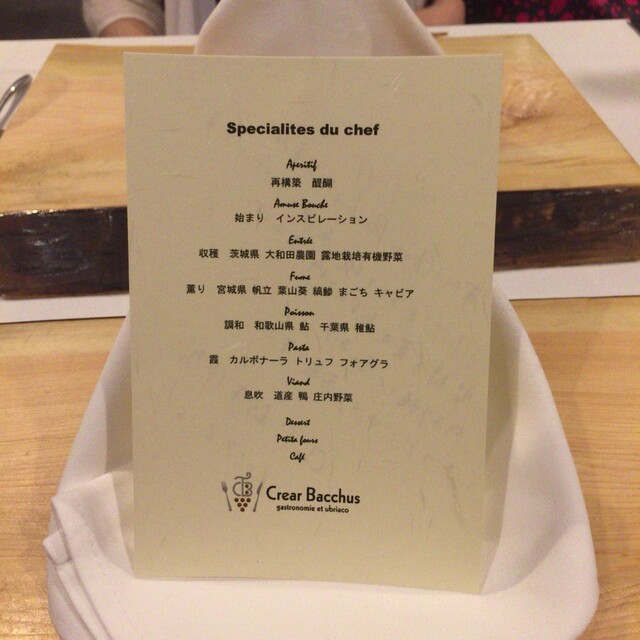 Specialites du chef
Aperitif
再構築 醍醐
Amuse Bouche
始まり インスピレーション
Entrée
収穫 茨城県 大和田農園 露地栽培有機野菜
Fume
薫り 宮城県 帆立 葉山葵 縞鯵 まごち キャビア
Poisson
調和 和歌山県 鮎 千葉県 稚鮎
Pasta
霞 カルボナーラ トリュフ フォアグラ
Viand
息吹 道産 鴨 庄内野菜
Dessert
Petits fours
Café
Crear Bacchus
gastronomie et ubriaco